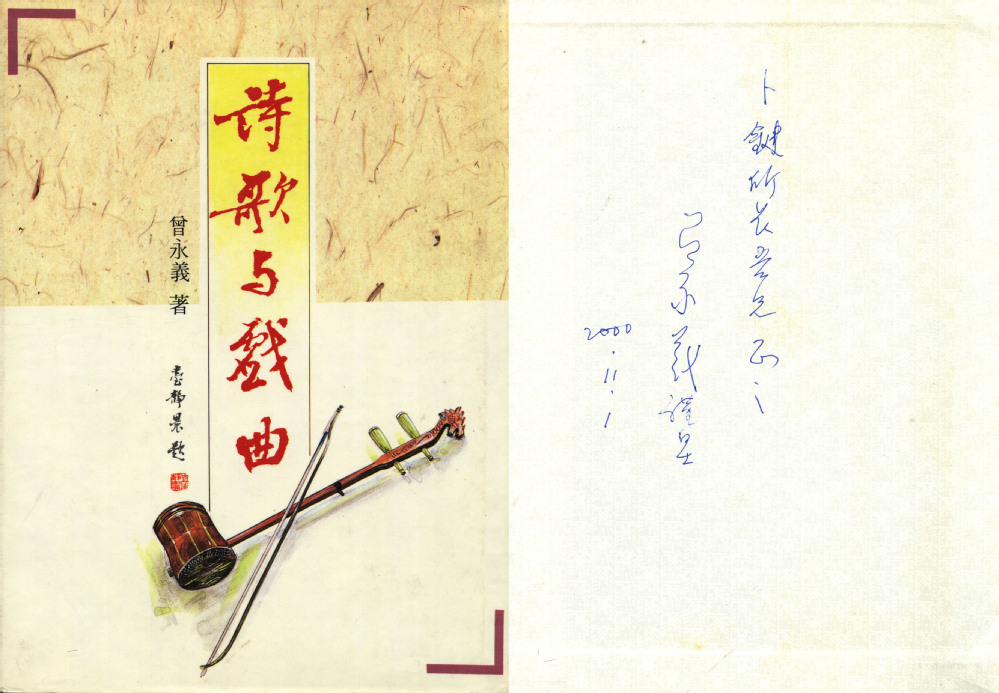 詩歌与戲曲
曾永義 著
臺靜農題
卜鍵所长尝兄正之
曾永義謹呈
2000.11.1